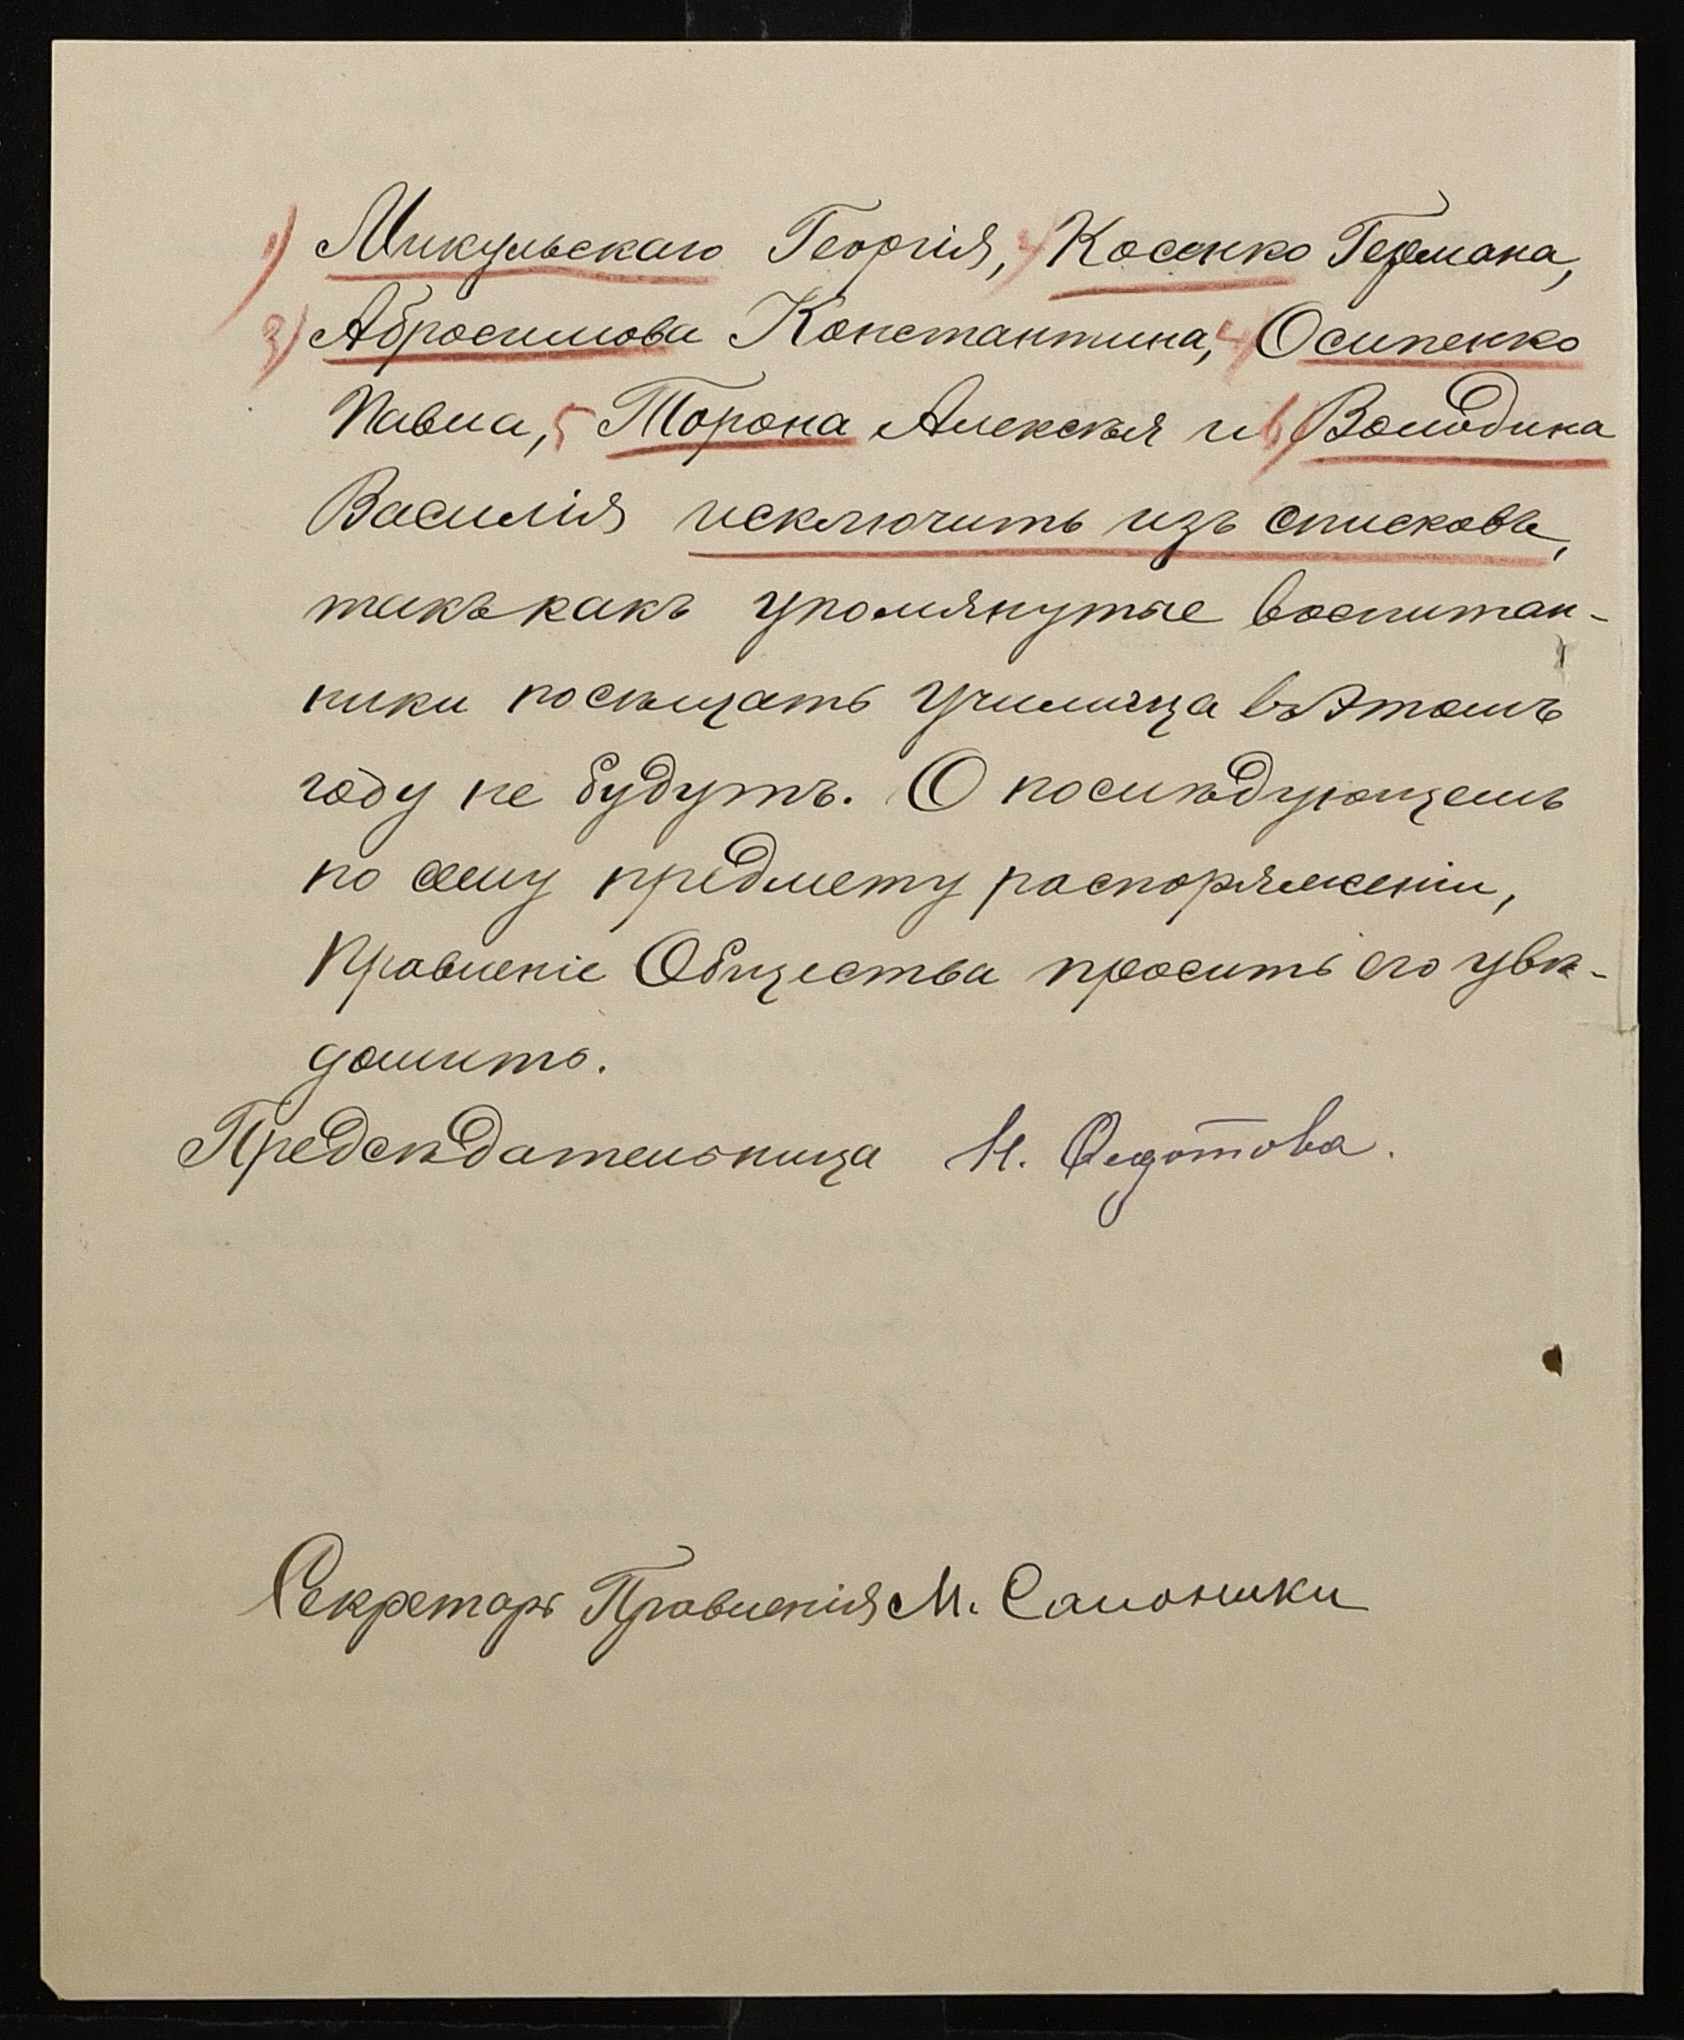 1) Микульскаго Георгія, 2) Косенко Германа,
3) Абросимова Константина, 4) Осипенко
Павла, 5 Торона Алексѣя и 6) Володина
Василія исключить изъ списковъ,
такъ какъ упомянутые воспитан-
ники посѣщать училища въ этомъ
году не будутъ. О послѣдующемъ
по сему предмету распоряженіи,
Правленіе Общества проситъ его увѣ-
домить.
Предсѣдательница Н. Федотова.
Секретарь Правленія М.